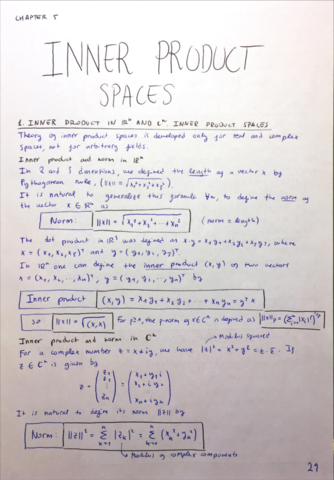 CHAPTER 5
INNER PRODUCT
SPACES
1. INNER PRODUCT IN ℝⁿ AND ℂⁿ. INNER PRODUCT SPACES
Theory of inner product spaces is developed only for real and complex
spaces, not for arbitrary fields.
Inner product and norm in ℝⁿ
In 2 and 3 dimensions, we defined the length of a vector x by
Pythagorean rule, (||x|| = √x₁²+x₂²+x₃²).
It is natural to generalize this formula ∀n, to define the norm of
the vector x ∈ ℝⁿ as
Norm: ||x|| = √x₁²+x₂²+...+xₙ² (norm = length)
The dot product in ℝ³ was defined as x·y = x₁y₁+x₂y₂+x₃y₃, where
x = (x₁,x₂,x₃)ᵀ and y = (y₁,y₂,y₃)ᵀ
In ℝⁿ one can define the inner product (x,y) of two vectors
x = (x₁,x₂,...,xₙ)ᵀ, y = (y₁,y₂,...,yₙ)ᵀ by
Inner product (x,y) = x₁y₁ + x₂y₂ + ... + xₙyₙ = yᵀx
so ||x|| = √(x,x) For p≥1, the p-norm of x∈ℂⁿ is defined as
Inner product and norm in ℂⁿ Modulus squared
For a complex number z = x+iy, we have |z|² = x²+y² = z·z̅. If
z ∈ ℂⁿ is given by
z = (z₁ z₂ ⋮ zₙ) = (x₁+iy₁ x₂+iy₂ ⋮ xₙ+iyₙ)
It is natural to define its norm ||z|| by
Norm: ||z||² = Σₖ₌₁ⁿ |zₖ|² = Σₖ₌₁ⁿ (xₖ²+yₖ²)
Modulus of complex components
29